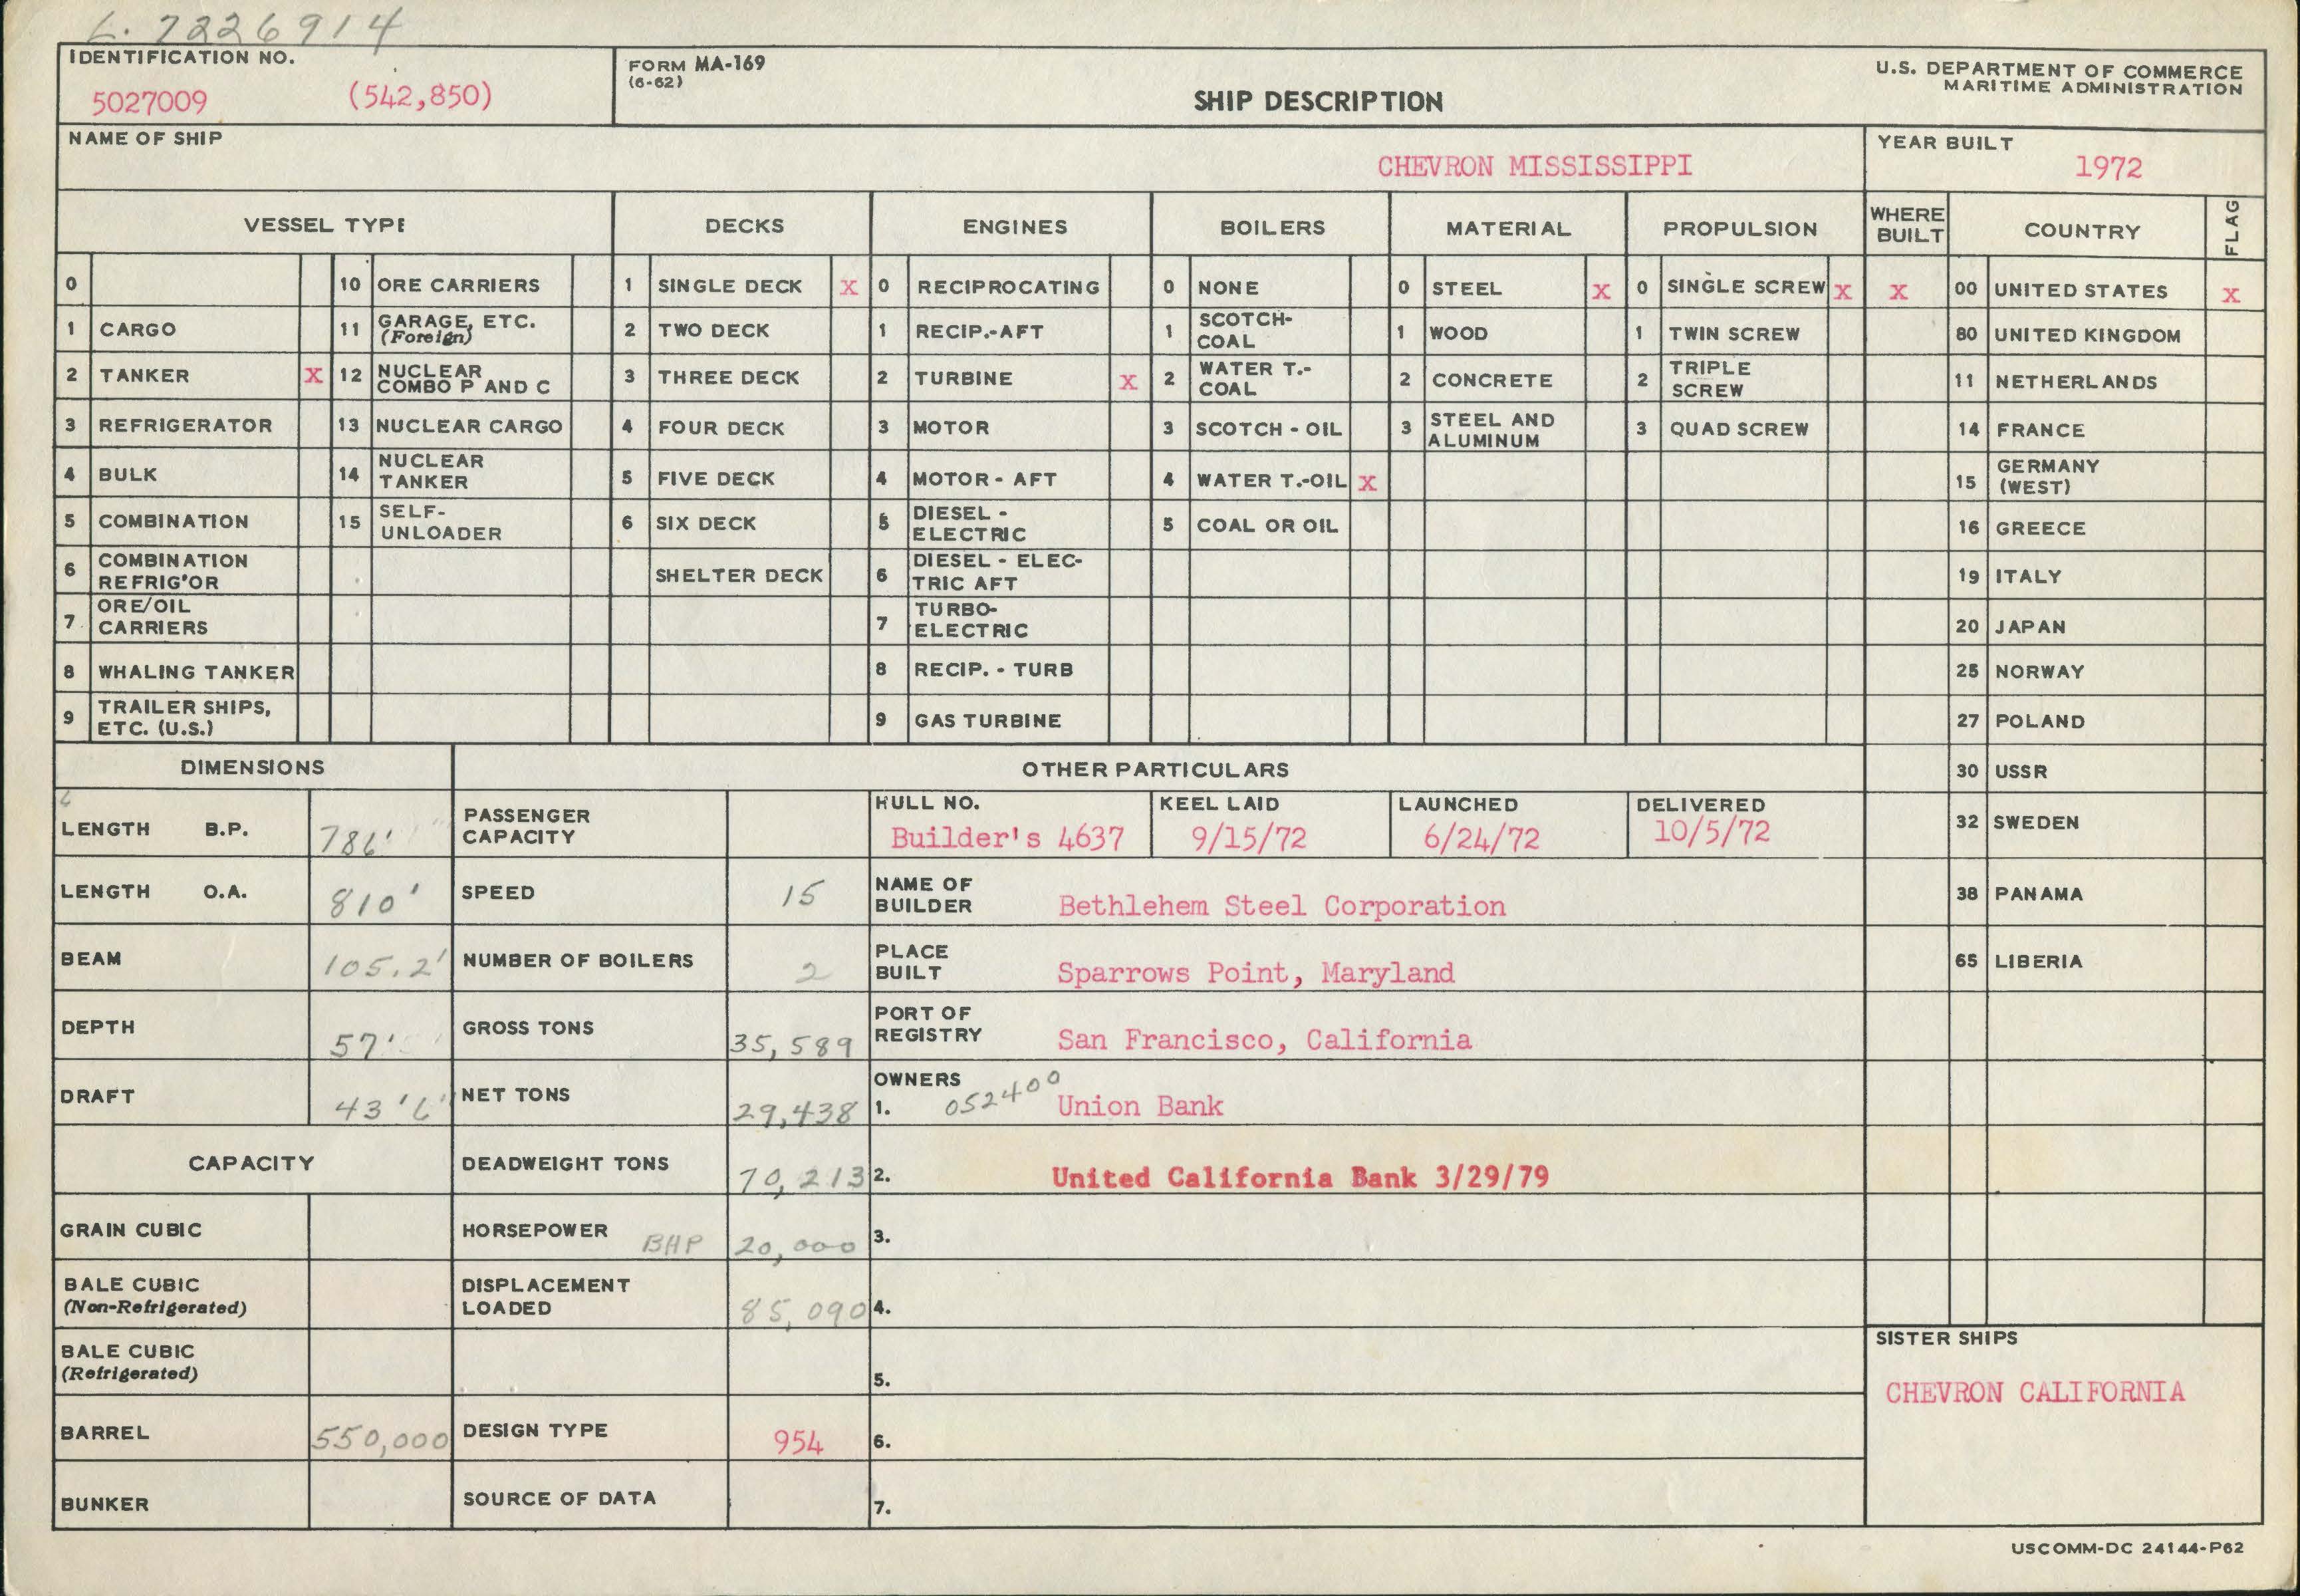 L. 7226914
IDENTIFICATION NO.
5027009 (542,850)
FORM MA-169
(6-62)
SHIP DESCRIPTION
U.S. DEPARTMENT OF COMMERCE
MARITIME ADMINISTRATION
NAME OF SHIP
CHEVRON MISSISSIPPI
YEAR BUILT
1972
VESSEL TYPE DECKS ENGINES BOILERS MATERIAL PROPULSION WHERE BUILT COUNTRY FLAG
0 10 ORE CARRIERS 1 SINGLE DECK X 0 RECIPROCATING 0 NONE 0 STEEL X 0 SINGLE SCREW X X 00 UNITED STATES X
1 CARGO 11 GARAGE, ETC. (Foreign) 2 TWO DECK 1 RECIP.-AFT 1 SCOTCH-COAL 1 WOOD 1 TWIN SCREW 80 UNITED KINGDOM
2 TANKER X 12 NUCLEAR COMBO P AND C 3 THREE DECK 2 TURBINE X 2 WATER T.-COAL 2 CONCRETE 2 TRIPLE SCREW 11 NETHERLANDS
3 REFRIGERATOR 13 NUCLEAR CARGO 4 FOUR DECK 3 MOTOR 3 SCOTCH - OIL 3 STEEL AND ALUMINUM 3 QUAD SCREW 14 FRANCE
4 BULK 14 NUCLEAR TANKER 5 FIVE DECK 4 MOTOR - AFT 4 WATER T.-OIL X 15 GERMANY (WEST)
5 COMBINATION 15 SELF-UNLOADER 6 SIX DECK 5 DIESEL - ELECTRIC 5 COAL OR OIL 16 GREECE
6 COMBINATION REFRIG'OR SHELTER DECK 6 DIESEL - ELEC-TRIC AFT 19 ITALY
7 ORE/OIL CARRIERS 7 TURBO-ELECTRIC 20 JAPAN
8 WHALING TANKER 8 RECIP. - TURB 25 NORWAY
9 TRAILER SHIPS, ETC. (U.S.) 9 GAS TURBINE 27 POLAND
DIMENSIONS OTHER PARTICULARS 30 USSR
LENGTH B.P. 786' PASSENGER CAPACITY HULL NO. Builder's 4637 KEEL LAID 9/15/72 LAUNCHED 6/24/72 DELIVERED 10/5/72 32 SWEDEN
LENGTH O.A. 810' SPEED 15 NAME OF BUILDER Bethlehem Steel Corporation 38 PANAMA
BEAM 105.2' NUMBER OF BOILERS 2 PLACE BUILT Sparrows Point, Maryland 65 LIBERIA
DEPTH 57' GROSS TONS 35,589 PORT OF REGISTRY San Francisco, California
DRAFT 43'6" NET TONS 29,438 OWNERS 1. 052400 Union Bank
CAPACITY DEADWEIGHT TONS 70,213 2. United California Bank 3/29/79
GRAIN CUBIC HORSEPOWER BHP 20,000 3.
BALE CUBIC (Non-Refrigerated) DISPLACEMENT LOADED 85,090 4.
BALE CUBIC (Refrigerated) 5.
SISTER SHIPS
CHEVRON CALIFORNIA
BARREL 550,000 DESIGN TYPE 954 6.
BUNKER SOURCE OF DATA 7.
USCOMM-DC 24144-P62